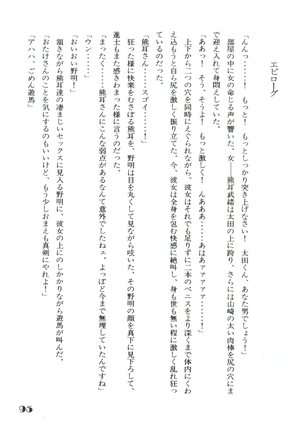 エピローグ
「んんっ……！　もっと！　もっとしっかり突き上げなさい！　太田くん、あなた男でしょう！」
部屋の中に女の命じる声が響いた。女――熊耳武緒は太田の上に跨り、さらには山崎の太い肉棒を尻の穴にま
で迎え入れて身悶えしていた。
「ああっ！　そう、そうよ！　もっと激しく！　んああぁ！」
上下から二つの穴を同時にえぐられながら、彼女はそれでも足りずに二本のペニスをより深くまで体内にくわ
え込もうと自ら尻を激しく振り立てた。今、彼女は全身を包む快感に絶叫し、身も世も無い程に激しく乱れ狂っ
ているのだった。
「熊耳さん……スゴイ……」
狂った様に快楽をむさぼる熊耳を、野明は目を丸くして見ながら呟いた。その野明の顔を真下に見下ろして、
進士もまた感きわまった様に言うのだった。
「まったく……熊耳さんにこんな弱点があるなんて意外でしたねェ。よっぽど今まで無理していたんですね」
「ウン……」
頷きながら熊耳の凄まじいセックスに見入る野明に、彼女の上にのしかかりながら遊馬が叫んだ。
「おいおい野明！
おたけさんのことを気にするのもいいけど、もう少しおまえも真剣にやれよ！」
「アハハ、ごめん遊馬」
95